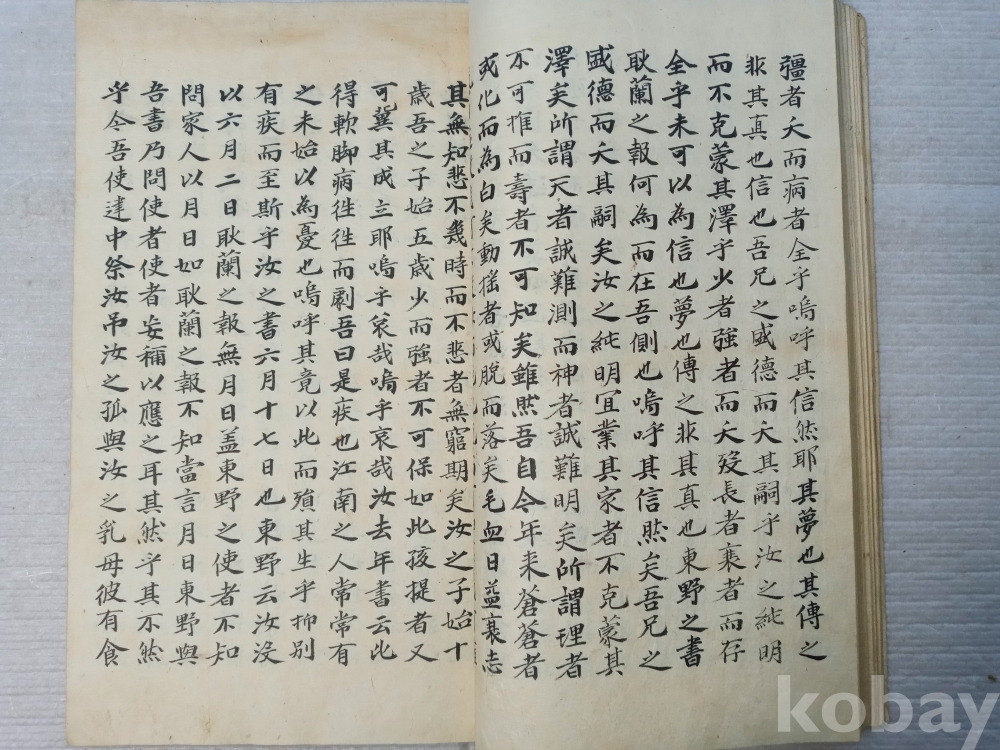 彊者夭而病者全乎嗚呼其信然耶其夢也其傳之
非其真也信也吾兄之盛德而夭其嗣乎汝之純明
而不克蒙其澤乎少者强者而夭歿長者衰者而存
全乎未可以為信也夢也傳之非其真也東野之書
耿蘭之報何為而在吾側也嗚呼其信然矣吾兄之
盛德而夭其嗣矣汝之純明宜業其家者不克蒙其
澤矣所謂天者誠難測而神者誠難明矣所謂理者
不可推而壽者不可知矣雖然吾自今年来蒼蒼者
或化而為白矣動搖者或脫而落矣毛血日益衰志
其無知悲不幾時而不悲者無窮期矣汝之子始十
歲吾之子始五歲少而強者不可保如此孩提者又
可冀其成立耶嗚乎哀哉嗚乎哀哉汝去年書云比
得軟脚病徃徃而劇吾曰是疾也江南之人常常有
之未始以為憂也嗚呼其竟以此而殞其生乎抑別
有疾而至斯乎汝之書六月十七日也東野云汝沒
以六月二日耿蘭之報無月日盖東野之使者不知
問家人以月日如耿蘭之報不知當言月日東野與
吾書乃問使者使者妄稱以應之耳其然乎其不然
乎今吾使建中祭汝吊汝之孤與汝之乳母彼有食
kobay